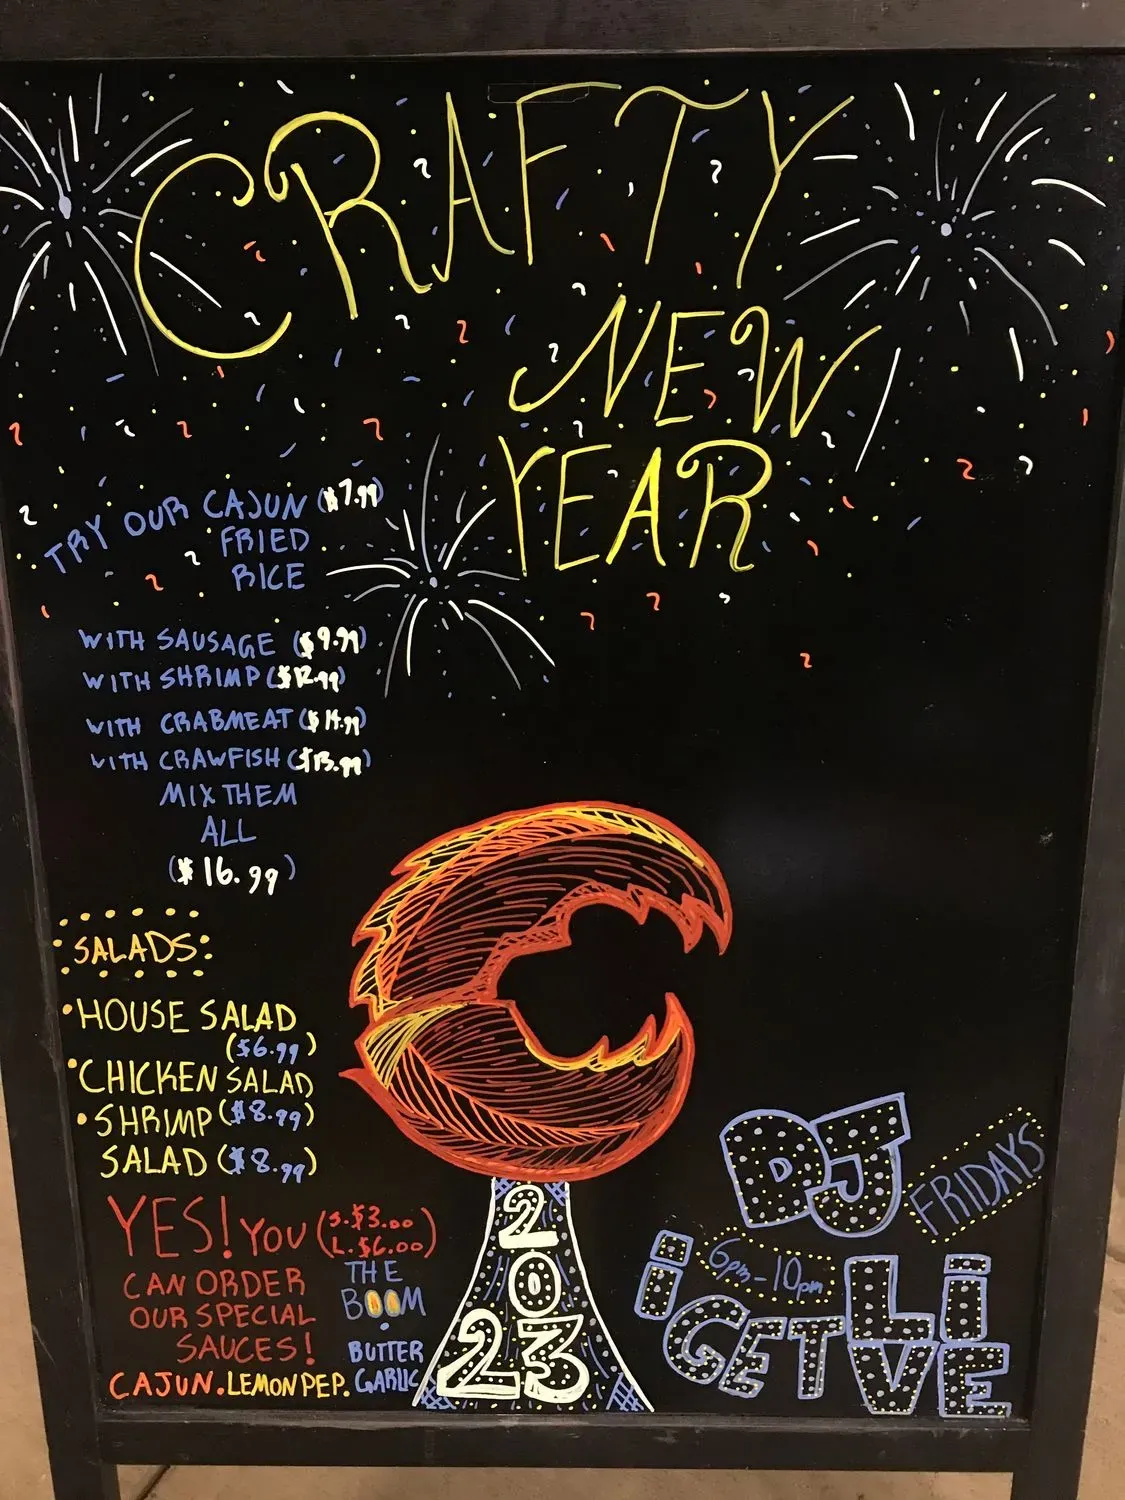 CRAFTY
NEW
YEAR
TRY OUR CAJUN ($7.99)
FRIED
RICE
WITH SAUSAGE ($9.99)
WITH SHRIMP ($12.99)
WITH CRABMEAT ($14.99)
WITH CRAWFISH ($13.99)
MIX THEM
ALL
($16.99)
SALADS:
•HOUSE SALAD
($6.99)
•CHICKEN SALAD
($8.99)
•SHRIMP
SALAD ($8.99)
YES! YOU (S.$3.00
L.$6.00)
CAN ORDER
OUR SPECIAL
SAUCES!
CAJUN. LEMON PEP.
THE
BOOM
•
BUTTER
GARLIC
2
0
23
DJ
FRIDAYS
6pm-10pm
iGET
Li
VE